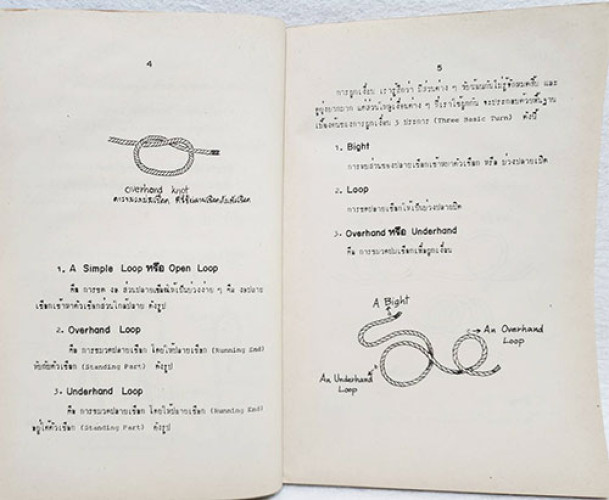 4
overhand knot
1. A Simple Loop หรือ Open Loop
คือ การขด งอ ส่วนปลายเชือกให้เป็นบ่วงง่าย ๆ คือ งอปลาย
เชือกเข้าหาตัวเชือกส่วนใกล้ปลาย ดังรูป
2. Overhand Loop
คือ การขมวดปลายเชือก โดยให้ปลายเชือก (Running End)
ทับกับตัวเชือก (Standing Part) ดังรูป
3. Underhand Loop
คือ การขมวดปลายเชือก โดยให้ปลายเชือก (Running End)
อยู่ใต้ตัวเชือก (Standing Part) ดังรูป
5
การผูกเงื่อน เรารู้สึกว่า มีส่วนต่าง ๆ ซับซ้อนกันไม่รู้จักหมดสิ้น และ
ยุ่งยากมาก แต่ส่วนใหญ่เงื่อนต่าง ๆ ที่เราใช้ผูกกัน จะประกอบด้วยพื้นฐาน
เบื้องต้นของการผูกเงื่อน 3 ประการ (Three Basic Turn) ดังนี้
1. Bight
การงอส่วนของปลายเชือกเข้าหาตัวเชือก หรือ บ่วงปลายเปิด
2. Loop
การขดปลายเชือกให้เป็นบ่วงปลายปิด
3. Overhand หรือ Underhand
คือ การขมวดปมเชือกเพื่อผูกเงื่อน
A Bight
An Overhand
Loop
An Underhand
Loop